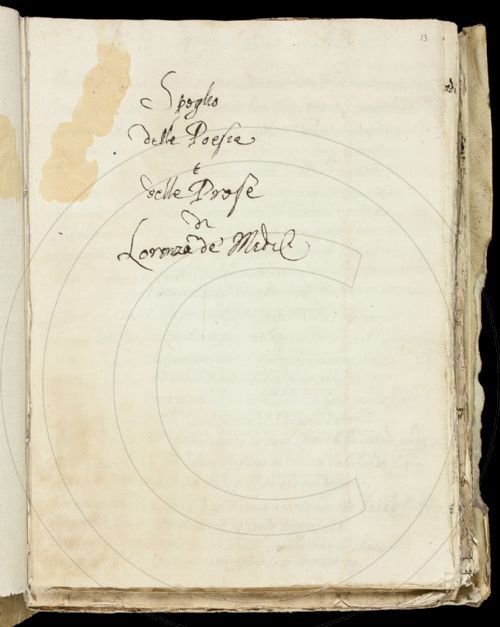 13
Spoglio
delle Poesie
e
delle Prose
di
Lorenzo de' Medici